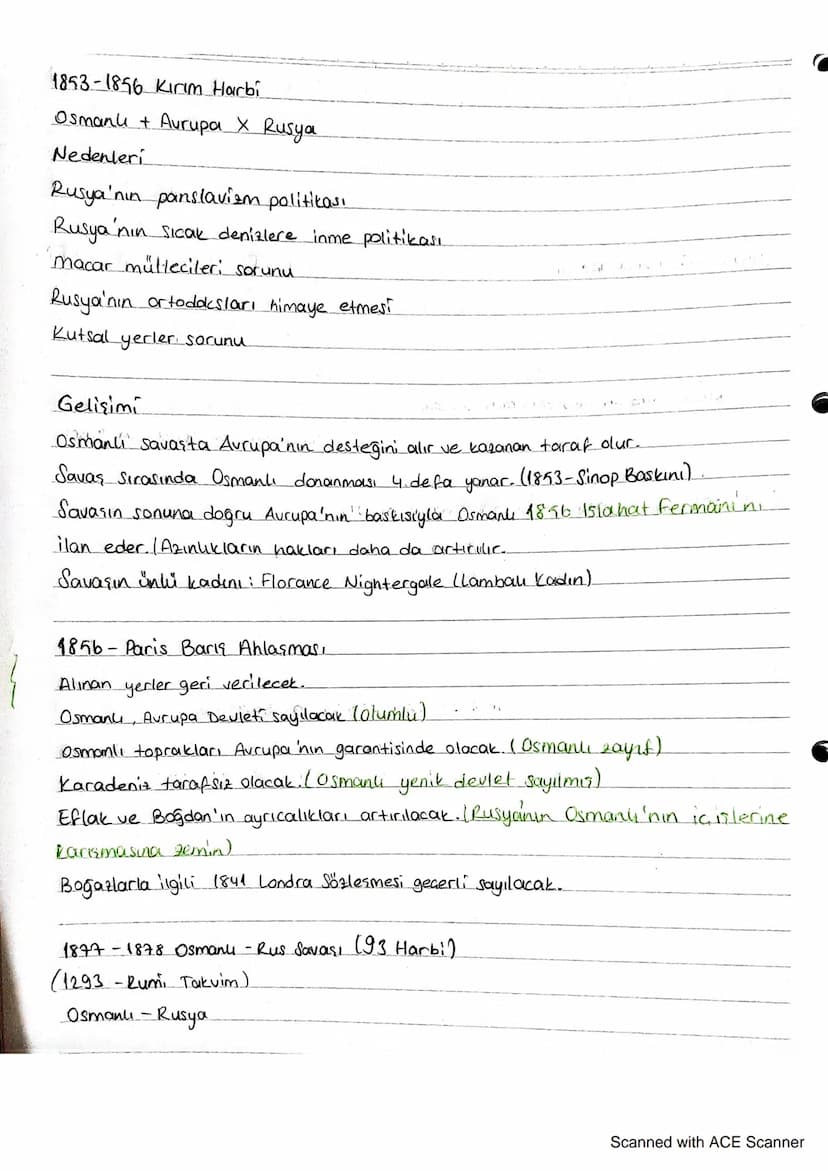 1853-1856 Kırım Harbi
Osmanlı + Avrupa X Rusya
Nedenleri
Rusya'nın panslavizm politikası
Rusya'nın sıcak denizlere inme politikası
Macar mültecileri sorunu
Rusya'nın ortodoksları himaye etmesi
Kutsal yerler sorunu
Gelişimi
Osmanlı savaşta Avrupa'nın desteğini alır ve kazanan taraf olur.
Savaş sırasında Osmanlı donanması 4. defa yanar. (1853-Sinop Baskını)
Savaşın sonuna doğru Avrupa'nın baskısıyla Osmanlı 1856 Islahat Fermanı'nı
ilan eder. (Azınlıkların hakları daha da artırılır.
Savaşın ünlü kadını: Florance Nightergale (Lambalı Kadın)
1856- Paris Barış Ahlaşması
Alınan yerler geri verilecek.
Osmanlı, Avrupa Devleti sayılacak (olumlu)
Osmanlı toprakları Avrupa'nın garantisinde olacak. (Osmanlı zayıf)
Karadeniz tarafsız olacak. (Osmanlı yenik devlet sayılmış)
Eflak ve Boğdan'ın ayrıcalıkları artırılacak. (Rusya'nın Osmanlı'nın iç işlerine
karışmasına zemin)
Boğazlarla ilgili 1841 Londra Sözleşmesi geçerli sayılacak.
1877-1878 Osmanlı-Rus Savaşı (93 Harbi)
(1293 -Rumi Takvim)
Osmanlı-Rusya
Scanned with ACE Scanner